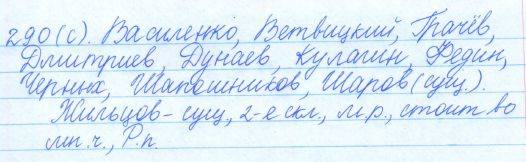 290(с). Василенко, Ветвицкий, Грачёв,
Дмитриев, Дунаев, Кулагин, Федин,
Черных, Шапошников, Шаров (сущ.).
Жильцов - сущ, 2-е скл., м.р., стоит во
мн.ч., Р.п.